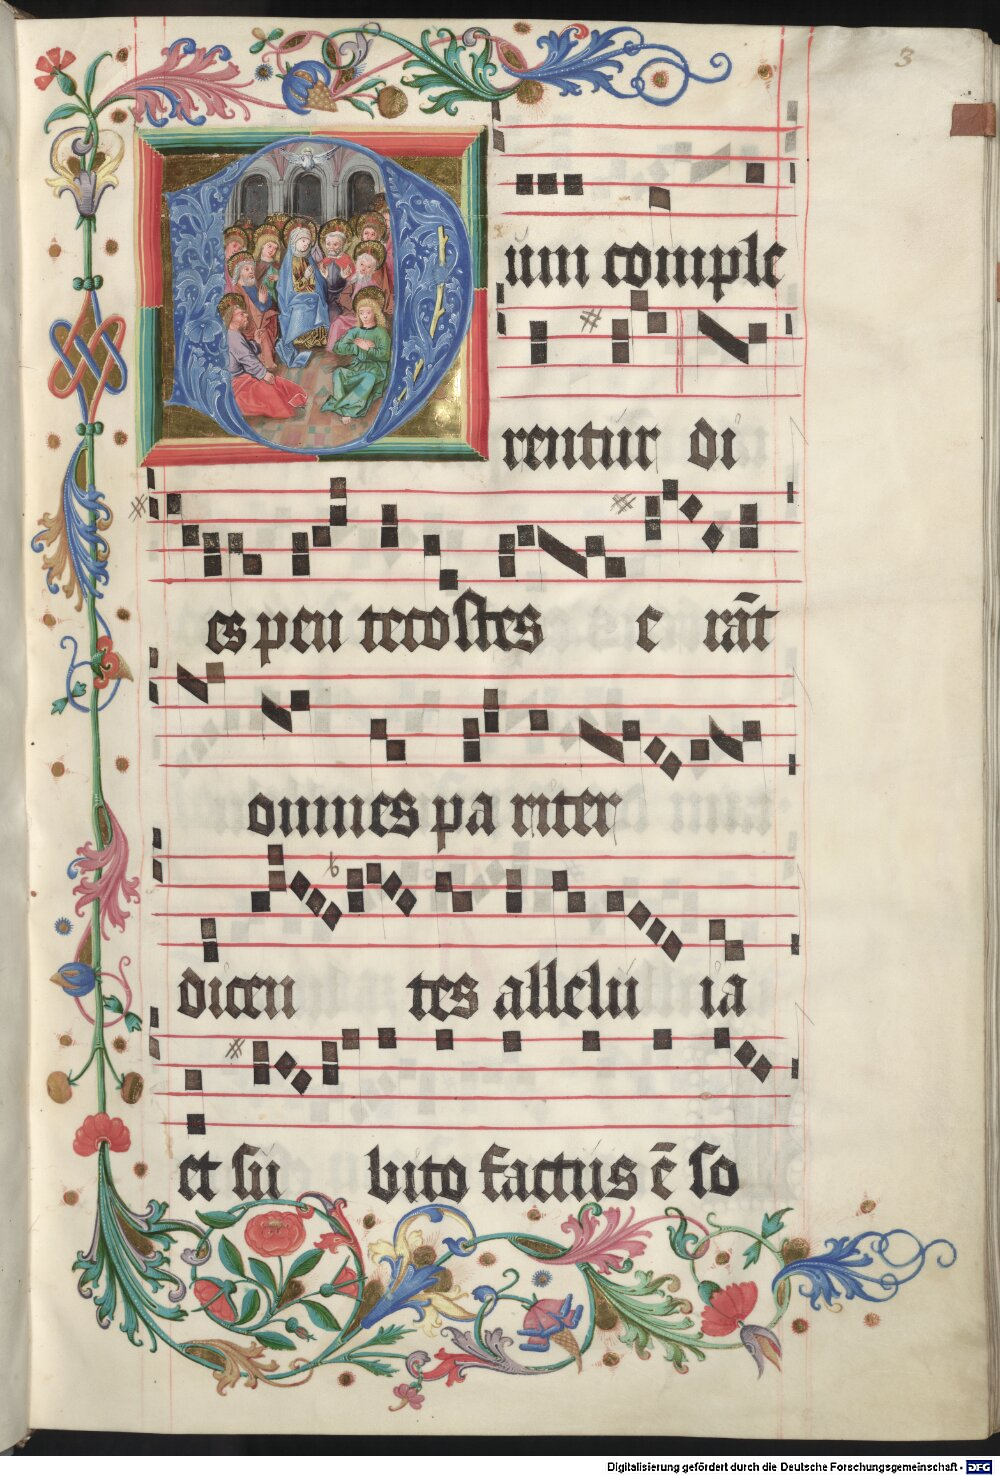 3
Dum comple
rentur di
es pentecostes e rāt
omnes pariter
dicentes alleluia
et subito factus ē so
Digitalisierung gefördert durch die Deutsche Forschungsgemeinschaft - DFG